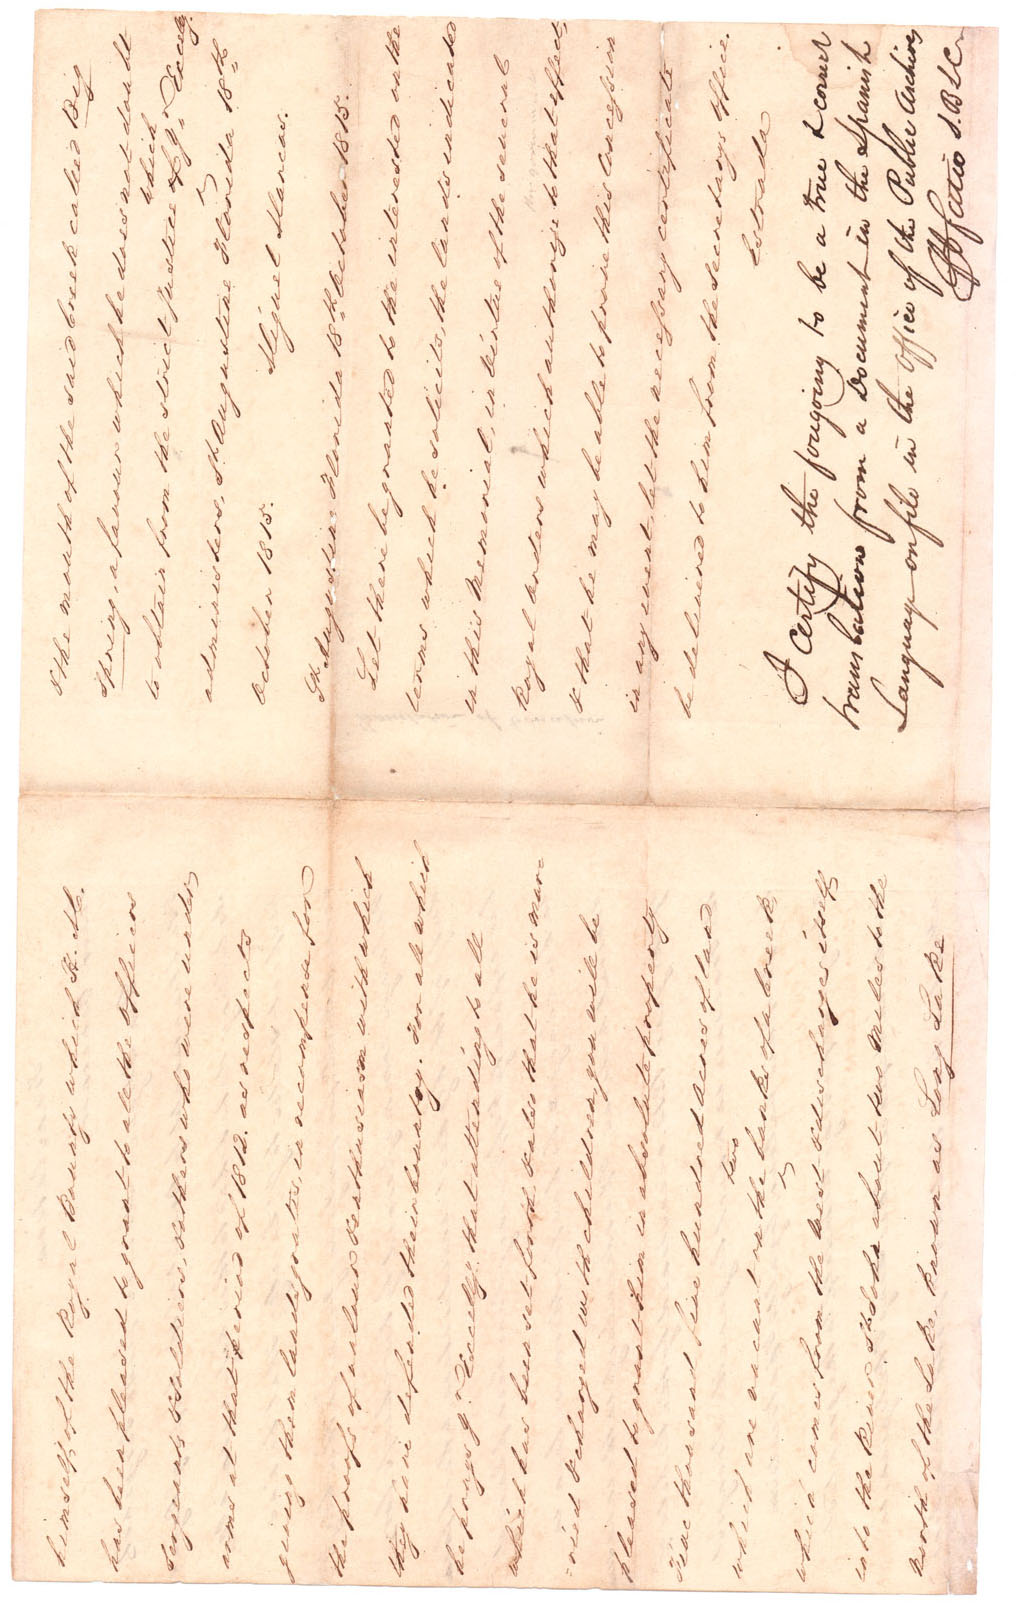 himself of the Royal Bounty which H. M.
has been pleased to grant to all the officers
sergeants & soldiers, & others who were under
arms at that Period of 1812. as respects
giving them lands gratis, in recompense for
the proofs of valour & enthusiasm with which
they have defended their country. For all which
he prays yr. Excelly. that attending to all
which has been set forth & also that he is mar-
-ried & charged with children, you will be
pleased to grant him in absolute property
Five thousand five hundred acres of land
two
which are vacant on the banks of a creek,
which comes from the West & discharges itself
into the River St. John about two miles to the
north of the Lake, known as Long Lake
& the mouth of the said creek called Big
Spring, a favour which he does not doubt
which
to obtain from the strict justice yr. Excelly.
administers, St. Augustine Florida 18th.
October 1815.
Miguel Marcos.
St. Augustine Florida 18th. October 1815.
Let there be granted to the interested on the
terms which he solicits, the lands indicated
in this Memorial, in virtue of the several
Royal orders which authorize to that effect,
& that he may be able to prove this concession
in any event let the necessary certificate
be delivered to him from the secretarys office.
Estrada
I certify the foregoing to be a true & correct
translation from a Document in the Spanish
Language on file in the office of the Public Archives
F J Fatio S.B L C